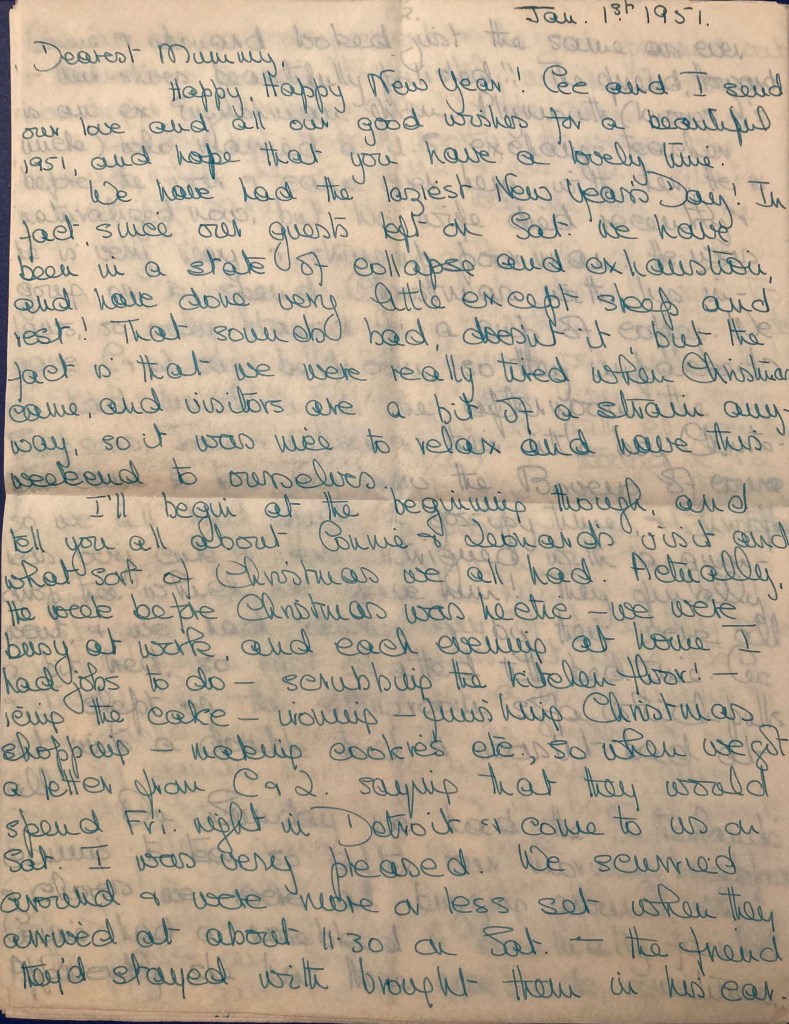 Jan. 1st 1951.
Dearest Mummy,
Happy, Happy New Year! Cec and I send
our love and all our good wishes for a beautiful
1951, and hope that you have a lovely time.
We have had the laziest New Year's Day! In
fact, since our guests left on Sat. we have
been in a state of collapse and exhaustion,
and have done very little except sleep and
rest! That sounds bad, doesn't it, but the
fact is that we were really tired when Christmas
came, and visitors are a bit of a strain any-
way, so it was nice to relax and have this
weekend to ourselves.
I'll begin at the beginning though, and
tell you all about Connie & Leonard's visit and
what sort of Christmas we all had. Actually,
the week before Christmas was hectic – we were
busy at work, and each evening at home I
had jobs to do – scrubbing the kitchen floor! –
icing the cake – ironing – finishing Christmas
shopping – making cookies etc., so when we got
a letter from C & L. saying that they would
spend Fri. night in Detroit & come to us on
Sat. I was very pleased. We scurried
around & were more or less set when they
arrived at about 11.30 on Sat. – the friend
they'd stayed with brought them in his car.